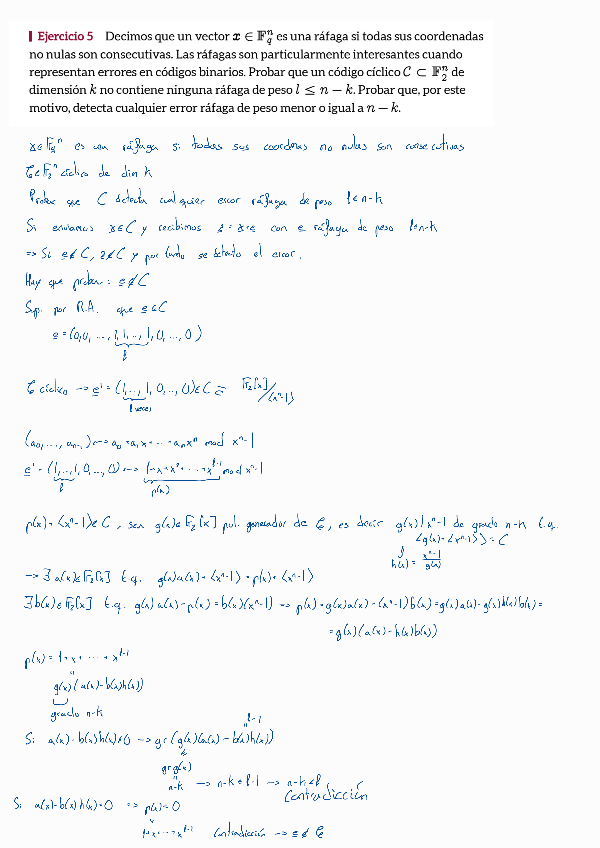 Ejercicio 5 Decimos que un vector x ∈ F_q^n es una ráfaga si todas sus coordenadas
no nulas son consecutivas. Las ráfagas son particularmente interesantes cuando
representan errores en códigos binarios. Probar que un código cíclico C ⊂ F_2^n de
dimensión k no contiene ninguna ráfaga de peso l ≤ n − k. Probar que, por este
motivo, detecta cualquier error ráfaga de peso menor o igual a n − k.
x∈F_q^n es una ráfaga si todas sus coordenas no nulas son consecutivas
C⊂F_2^n cíclico de dim k
Probar que C detecta cualquier error ráfaga de peso l≤n-k
Si enviamos x∈C y recibimos z = x+e con e ráfaga de peso l≤n-k
=> Si e∉C, z∉C y por tanto se detecta el error.
Hay que probar: e∉C
Sup. por R.A. que e∈C
e = (0,0, ..., 1, 1, ..., 1, 0, ..., 0)
l
C cíclico → e' = (1, ..., 1, 0, ..., 0)∈C ≅ F_2[x]/<x^n-1>
l veces
(a_0, ..., a_n-1) ↔ a_0 + a_1x + ... + a_nx^n mod x^n-1
e' = (1, ..., 1, 0, ..., 0) ↔ 1+x+x^2+ ... +x^l-1 mod x^n-1
l p(x)
p(x) + <x^n-1>∈C, sea g(x)∈F_2[x] pol. generador de C, es decir g(x)|x^n-1 de grado n-k t.q.
<g(x)+<x^n-1>> = C
h(x) = x^n-1/g(x)
→ ∃ a(x)∈F_2[x] t.q. g(x)a(x) + <x^n-1> = p(x) + <x^n-1>
∃b(x)∈F_2[x] t.q. g(x)a(x) - p(x) = b(x)(x^n-1) → p(x) = g(x)a(x) - (x^n-1)b(x) = g(x)a(x) - g(x)h(x)b(x) =
= g(x)(a(x) - h(x)b(x))
p(x) = 1+x+ ... +x^l-1
"
g(x)(a(x)-b(x)h(x))
grado n-k
l-1
"
Si a(x)-b(x)h(x)≠0 → gr(g(x)(a(x)-b(x)h(x))
gr g(x)
"
n-k → n-k ≤ l-1 → n-k < l
Contradicción
Si a(x)-b(x)h(x)=0 → p(x)=0
"
1+x+...+x^l-1 Contradicción → e ∉ C